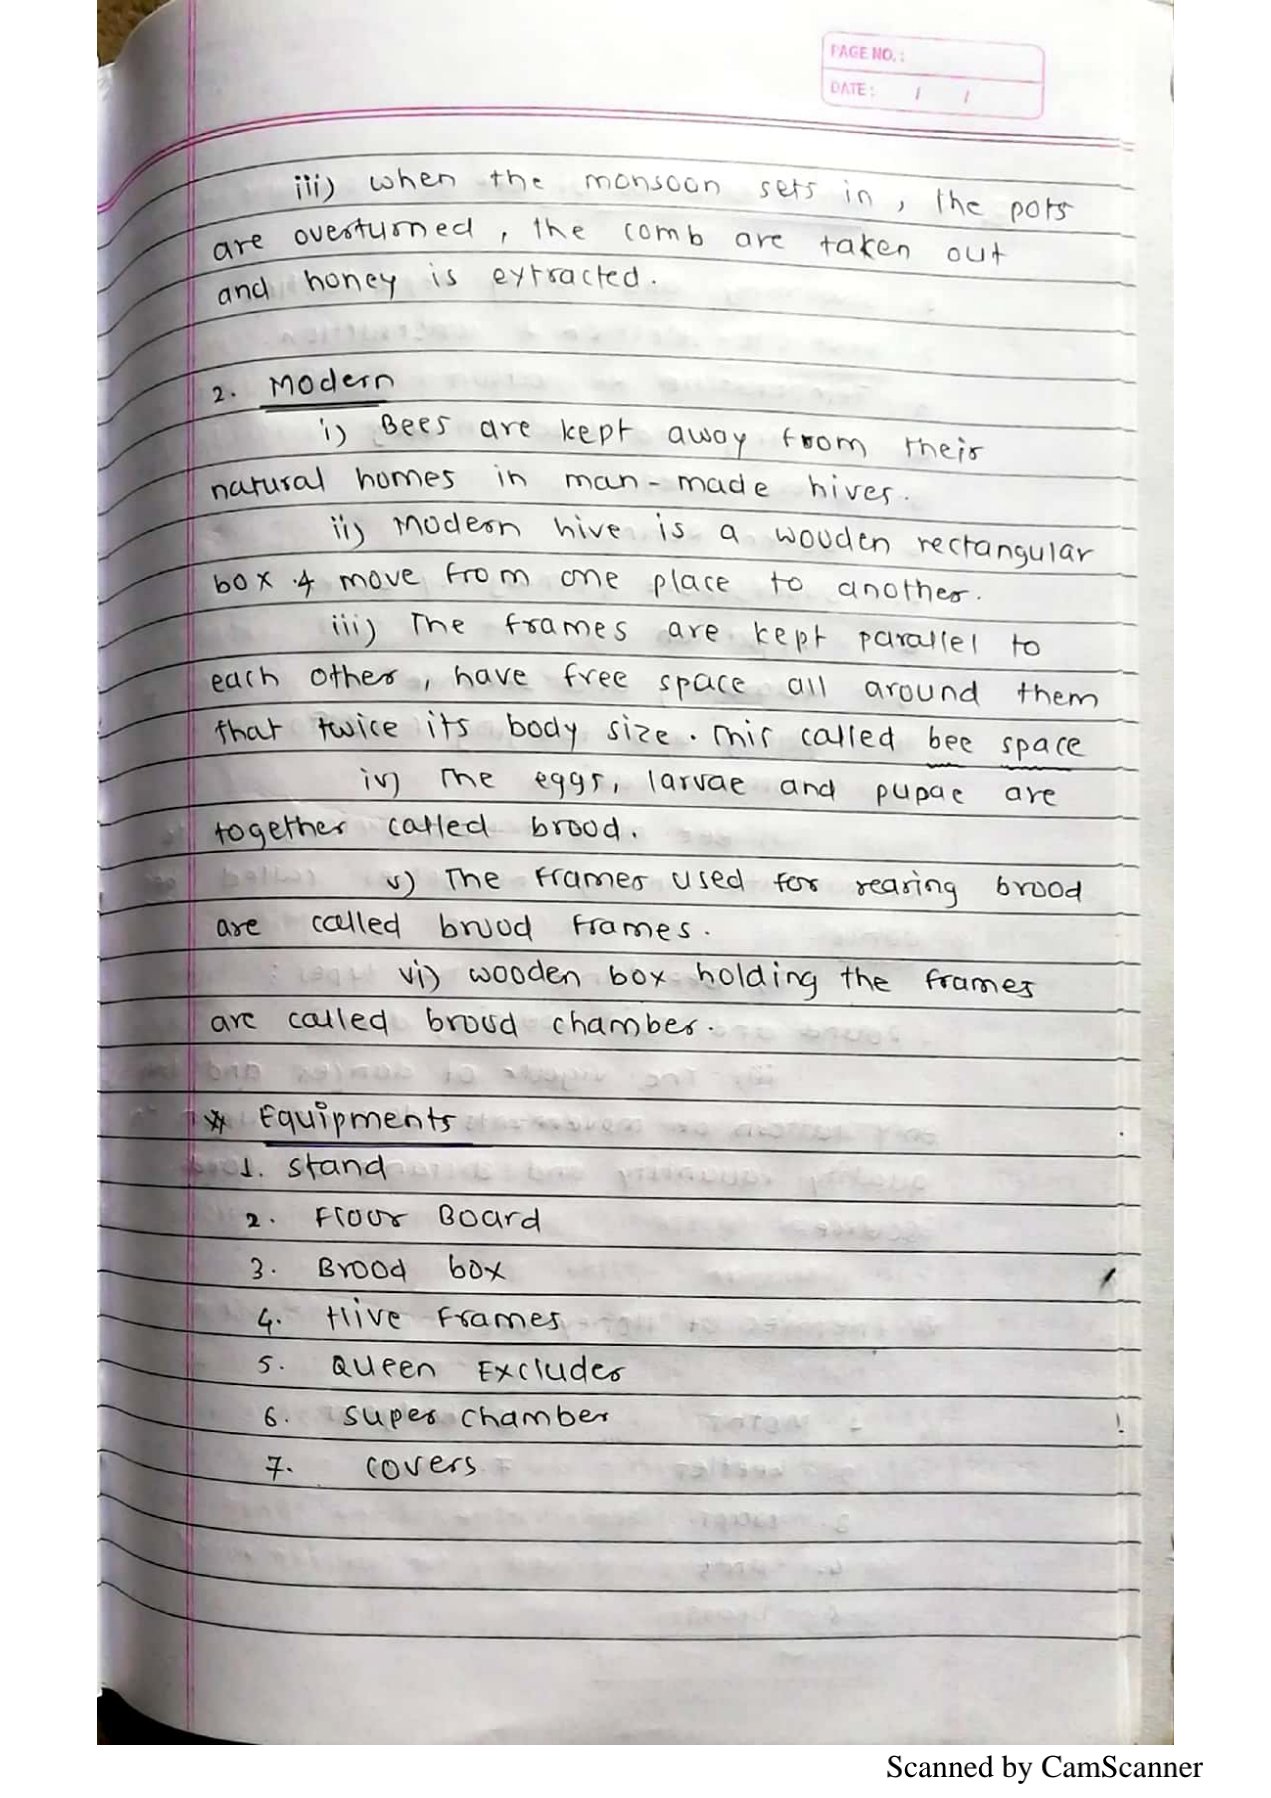 PAGE NO. :
DATE : / /
iii) when the monsoon sets in, the pots
are overturned, the comb are taken out
and honey is extracted.
2. Modern
i) Bees are kept away from their
natural homes in man-made hives.
ii) Modern hive is a wooden rectangular
box & move from one place to another.
iii) The frames are kept parallel to
each other, have free space all around them
that twice its body size. This called bee space
iv) The eggs, larvae and pupae are
together called brood.
v) The frames used for rearing brood
are called brood frames.
vi) wooden box holding the frames
are called brood chamber.
* Equipments
1. Stand
2. Floor Board
3. Brood box
4. Hive Frames
5. Queen Excluder
6. Super chamber
7. covers
Scanned by CamScanner